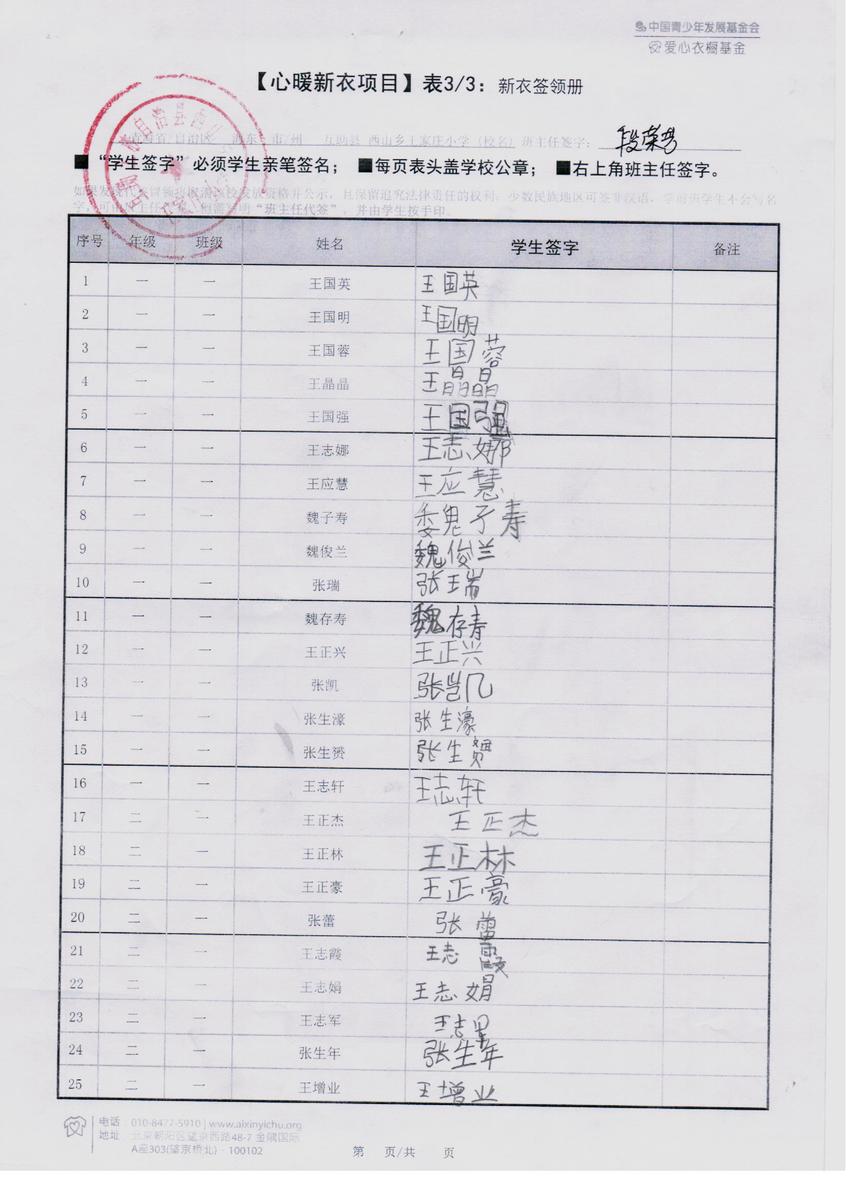 中国青少年发展基金会
爱心衣橱基金
【心暖新衣项目】表3/3：新衣签领册
市/州 互助县 西山乡王家庄小学（校名）班主任签字：
■“学生签字”必须学生亲笔签名； ■每页表头盖学校公章； ■右上角班主任签字。
序号 年级 班级 姓名 学生签字 备注
1 一 一 王国英 王国英
2 一 一 王国明 王国明
3 一 一 王国蓉 王国蓉
4 一 一 王晶晶 王晶晶
5 一 一 王国强 王国强
6 一 一 王志娜 王志娜
7 一 一 王应慧 王应慧
8 一 一 魏子寿 魏子寿
9 一 一 魏俊兰 魏俊兰
10 一 一 张瑞 张瑞
11 一 一 魏存寿 魏存寿
12 一 一 王正兴 王正兴
13 一 一 张凯 张凯
14 一 一 张生濠 张生濠
15 一 一 张生赟 张生赟
16 一 一 王志轩 王志轩
17 二 一 王正杰 王正杰
18 二 一 王正林 王正林
19 二 一 王正豪 王正豪
20 二 一 张蕾 张蕾
21 二 一 王志霞 王志霞
22 二 一 王志娟 王志娟
23 二 一 王志军 王志军
24 二 一 张生年 张生年
25 二 一 王增业 王增业
电话 010-8477-5910 | www.aixinyichu.org
地址 北京朝阳区望京西路48-7 金隅国际
A座303(望京桥北)·100102
第 页/共 页